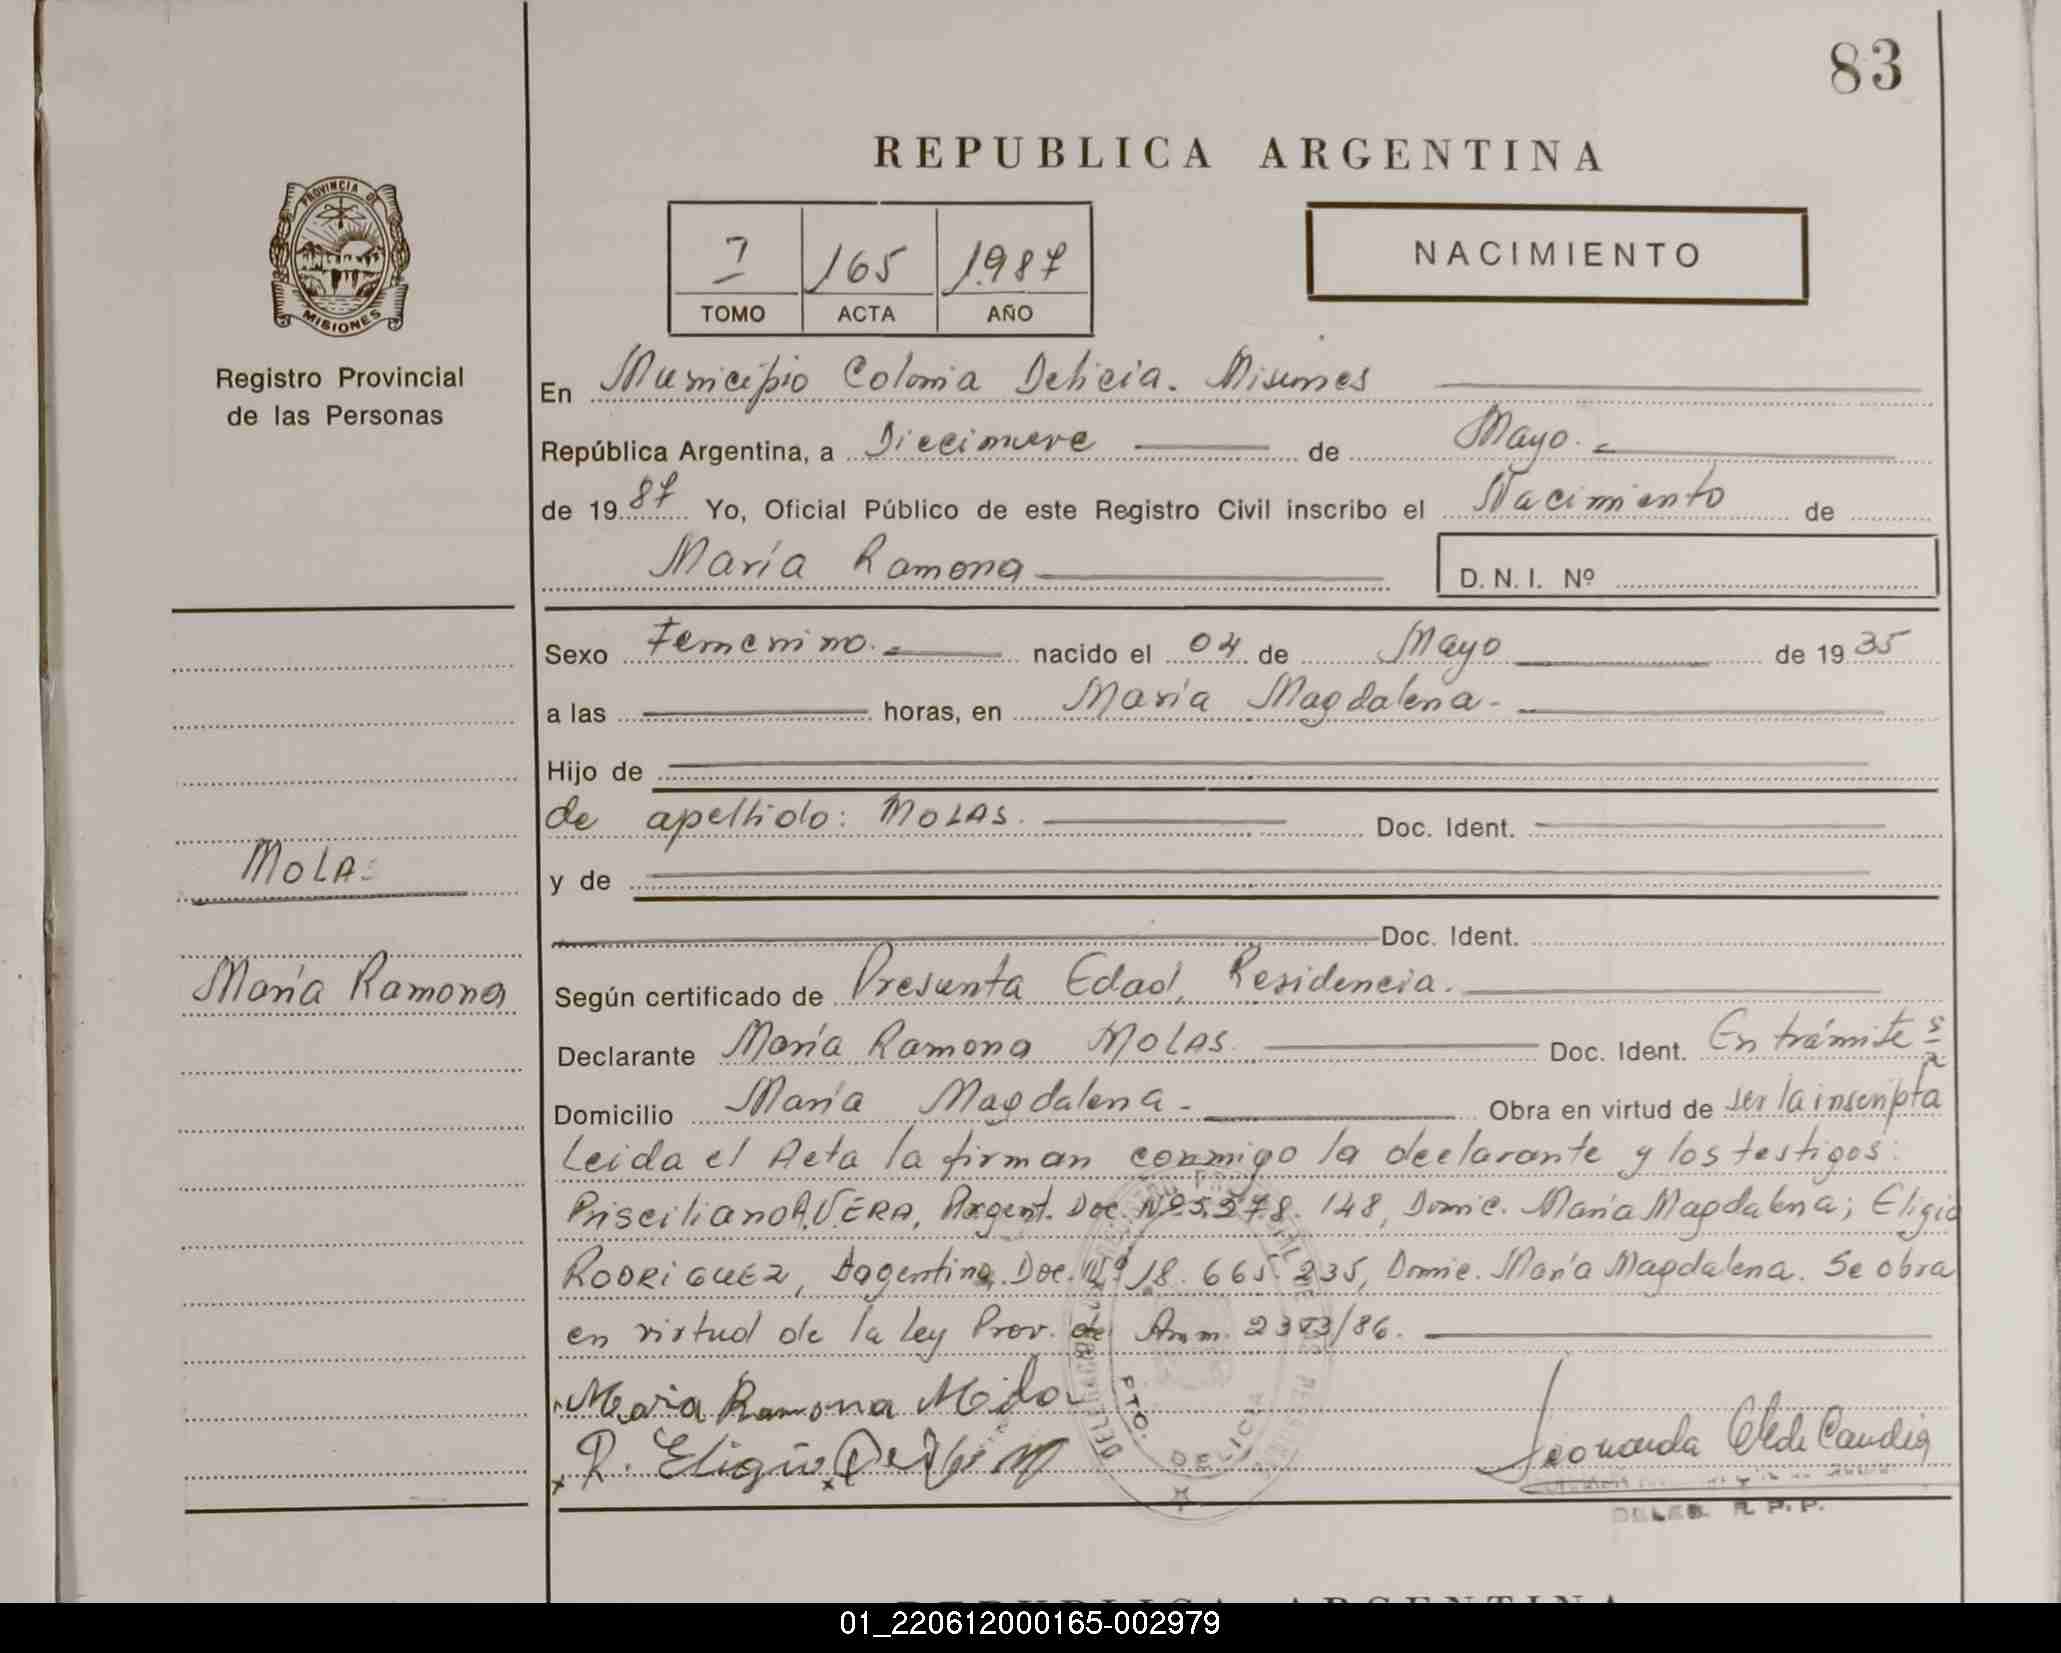 83
REPUBLICA ARGENTINA
PROVINCIA DE
MISIONES
Registro Provincial
de las Personas
165 1987
TOMO ACTA AÑO
NACIMIENTO
En Municipio Colonia Delicia. Misiones
República Argentina, a Diecinueve de Mayo.
de 1987 Yo, Oficial Público de este Registro Civil inscribo el Nacimiento de
María Ramona D.N.I. Nº
Sexo Femenino. nacido el 04 de Mayo de 1935
a las horas, en María Magdalena.
Hijo de
de apellido: MOLAS. Doc. Ident.
y de
Doc. Ident.
MOLAS
María Ramona
Según certificado de Presunta Edad, Residencia.
Declarante María Ramona MOLAS. Doc. Ident. En trámite
Domicilio María Magdalena - Obra en virtud de ser la inscripta
Leida el Acta la firman conmigo la declarante y los testigos:
Prisciliano A. VERA, Argent. Doc. Nº 5.378.148, Domic. María Magdalena; Eligio
RODRIGUEZ, Argentino, Doc. Nº 18.665.235, Domic. María Magdalena. Se obra
en virtud de la ley Prov. de Amn. 2373/86.
Maria Ramona
R. Eligio
Leonarda de Candia
PTO. DELICIA
DELEG. R. P. P.
REPUBLICA ARGENTINA
01_220612000165-002979